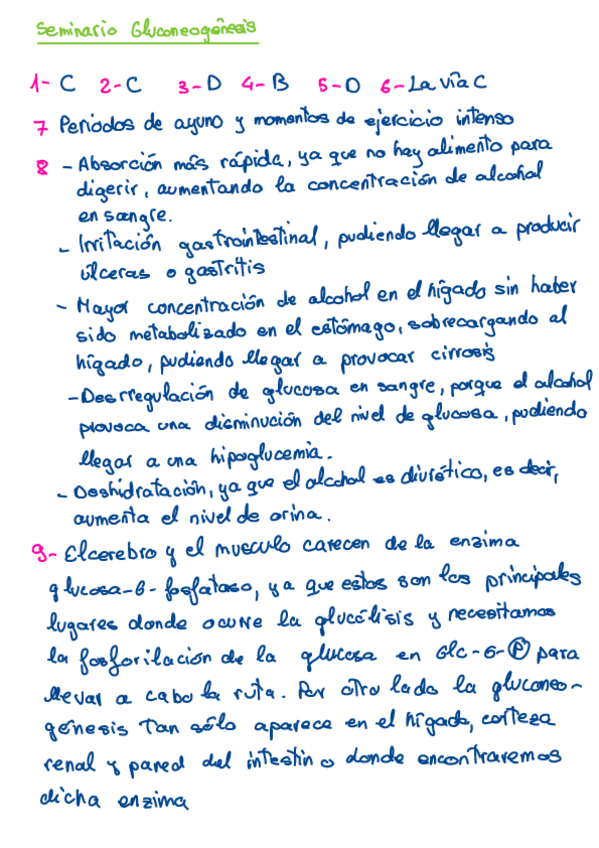 Seminario Gluconeogénesis
1- C 2- C 3- D 4- B 5- D 6- La vía C
7 Periodos de ayuno y momentos de ejercicio intenso
8 - Absorción más rápida, ya que no hay alimento para
digerir, aumentando la concentración de alcohol
en sangre.
- Irritación gastrointestinal, pudiendo llegar a producir
úlceras o gastritis
- Mayor concentración de alcohol en el hígado sin haber
sido metabolizado en el estómago, sobrecargando al
hígado, pudiendo llegar a provocar cirrosis
- Desrregulación de glucosa en sangre, porque el alcohol
provoca una disminución del nivel de glucosa, pudiendo
llegar a una hipoglucemia.
- Deshidratación, ya que el alcohol es diurético, es decir,
aumenta el nivel de orina.
9- El cerebro y el musculo carecen de la enzima
glucosa-6-fosfatasa, ya que estos son los principales
lugares donde ocurre la glucólisis y necesitamos
la fosforilación de la glucosa en Glc-6-Ⓟ para
llevar a cabo la ruta. Por otro lado la gluconeo-
génesis tan sólo aparece en el hígado, corteza
renal y pared del intestino donde encontraremos
dicha enzima